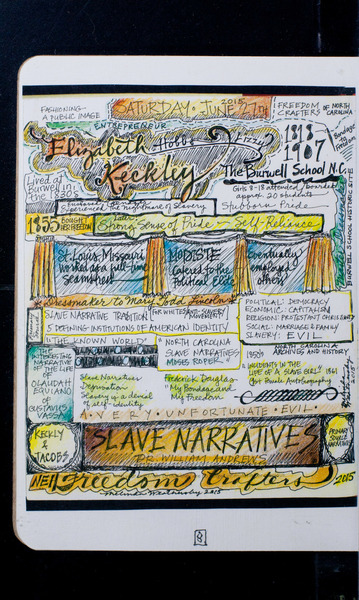 FASHIONING
A PUBLIC IMAGE
SATURDAY · JUNE 27th
2015
FREEDOM
CRAFTERS OF NORTH
CAROLINA
ENTREPRENEUR
Elizabeth
Hobbs
Keckley
1818
1907
Bondage
to
Freedom
The Burwell School N.C.
Lived at
Burwell in
the 1830s
Girls 8-18 attended / boarded
approx. 20 students
the nightmare of Slavery
Stubborn Pride
BURWELL SCHOOL HISTORIC SITE
1855 BOUGHT
HER FREEDOM
Later:
Strong sense of Pride — Self-Reliance
St. Louis, Missouri
worked as a full-time
Seamstress
MODISTE
Catered to the
Political Elite
Eventually
employed
others
* Dressmaker to Mary Todd Lincoln *
SLAVE NARRATIVE TRADITION
FOR WHITES ANTI-SLAVERY
MOVEMENT
5 DEFINING INSTITUTIONS OF AMERICAN IDENTITY
POLITICAL: DEMOCRACY
ECONOMIC: CAPITALISM
RELIGION: PROTESTANT CHRISTIANITY
SOCIAL: MARRIAGE & FAMILY
SLAVERY: EVIL
"THE KNOWN WORLD"
"NORTH CAROLINA
SLAVE NARRATIVES"
MOSES ROPER"
NORTH CAROLINA
ARCHIVES AND HISTORY
1850s
INTERESTING
NARRATIVE
OF THE LIFE
OF
OLAUDAH
EQUIANO
OR
GUSTAVUS
VASSA
Slave Narratives
Deprivation
Slavery is a denial
of self identity
Frederick Douglas -
My Bondage and
My Freedom
INCIDENTS IN THE
LIFE OF A SLAVE GIRL 1861
Autobiography
A · VERY · UNFORTUNATE · EVIL ·
KECKLY
&
JACOBS
SLAVE NARRATIVES
DR. WILLIAM ANDREWS
PRIMARY
SOURCE
NARRATIVES
NEH
Freedom Crafters
2015